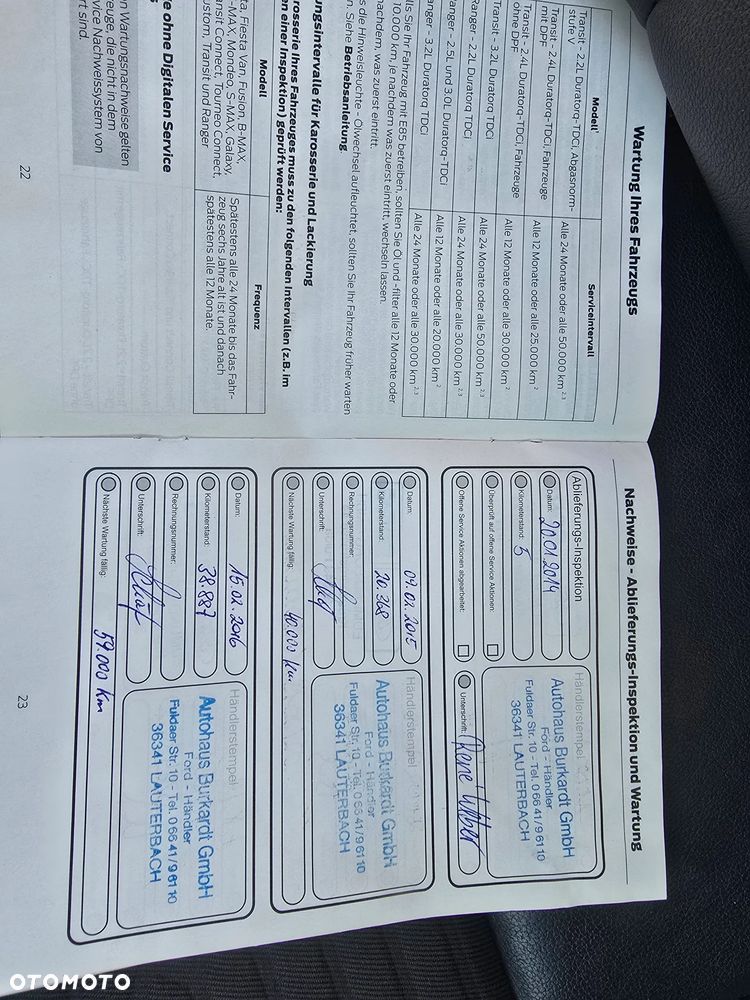 Wartung Ihres Fahrzeugs
Modell¹
Serviceintervall
Transit - 2.2L Duratorq-TDCi, Abgasnorm-
stufe V
Alle 24 Monate oder alle 50.000 km ²·³
Transit - 2.4L Duratorq-TDCi, Fahrzeuge
mit DPF
Alle 12 Monate oder alle 25.000 km ²
Transit - 2.4L Duratorq-TDCi, Fahrzeuge
ohne DPF
Alle 12 Monate oder alle 30.000 km ²
3.2L Duratorq TDCi
Alle 24 Monate oder alle 50.000 km ²·³
Ranger - 2.2L Duratorq TDCi
Alle 24 Monate oder alle 30.000 km ²·³
anger - 2.5L und 3.0L Duratorq-TDCi
Alle 12 Monate oder alle 20.000 km ²
anger - 3.2L Duratorq TDCi
Alle 24 Monate oder alle 30.000 km ²·³
lls Sie Ihr Fahrzeug mit E85 betreiben, sollten Sie Öl und -filter alle 12 Monate oder
10.000 km, je nachdem was zuerst eintritt, wechseln lassen.
nachdem, was zuerst eintritt.
s die Hinweisleuchte - Ölwechsel aufleuchtet, sollten Sie Ihr Fahrzeug früher warten
n. Siehe Betriebsanleitung.
ungsintervalle für Karosserie und Lackierung
rosserie Ihres Fahrzeuges muss zu den folgenden Intervallen (z.B. im
en einer Inspektion) geprüft werden:
Modell
Frequenz
ta, Fiesta Van, Fusion, B-MAX,
-MAX, Mondeo, S-MAX, Galaxy,
nsit Connect, Tourneo Connect,
ustom, Transit und Ranger
Spätestens alle 24 Monate bis das Fahr-
zeug sechs Jahre alt ist und danach
spätestens alle 12 Monate.
e ohne Digitalen Service
n Wartungsnachweise gelten
euge, die nicht in dem
vice Nachweissystem von
rt sind.
22
Nachweise - Ablieferungs-Inspektion und Wartung
Ablieferungs-Inspektion
Datum: 20.01.2014
Kilometerstand: 5
Überprüft auf offene Service Aktionen:
Offene Service Aktionen abgearbeitet:
Händlerstempel
Autohaus Burkardt GmbH
Ford - Händler
Fuldaer Str. 10 - Tel. 0 66 41/9 61 10
36341 LAUTERBACH
Unterschrift:
Datum: 04.02.2015
Kilometerstand: 20.368
Rechnungsnummer:
Unterschrift:
Nächste Wartung fällig: 40.000 km
Händlerstempel
Autohaus Burkardt GmbH
Ford - Händler
Fuldaer Str. 10 - Tel. 0 66 41/9 61 10
36341 LAUTERBACH
Datum: 15.02.2016
Kilometerstand: 38.887
Rechnungsnummer:
Unterschrift:
Nächste Wartung fällig: 59.000 km
Händlerstempel
Autohaus Burkardt GmbH
Ford - Händler
Fuldaer Str. 10 - Tel. 0 66 41/9 61 10
36341 LAUTERBACH
23
OTOMOTO